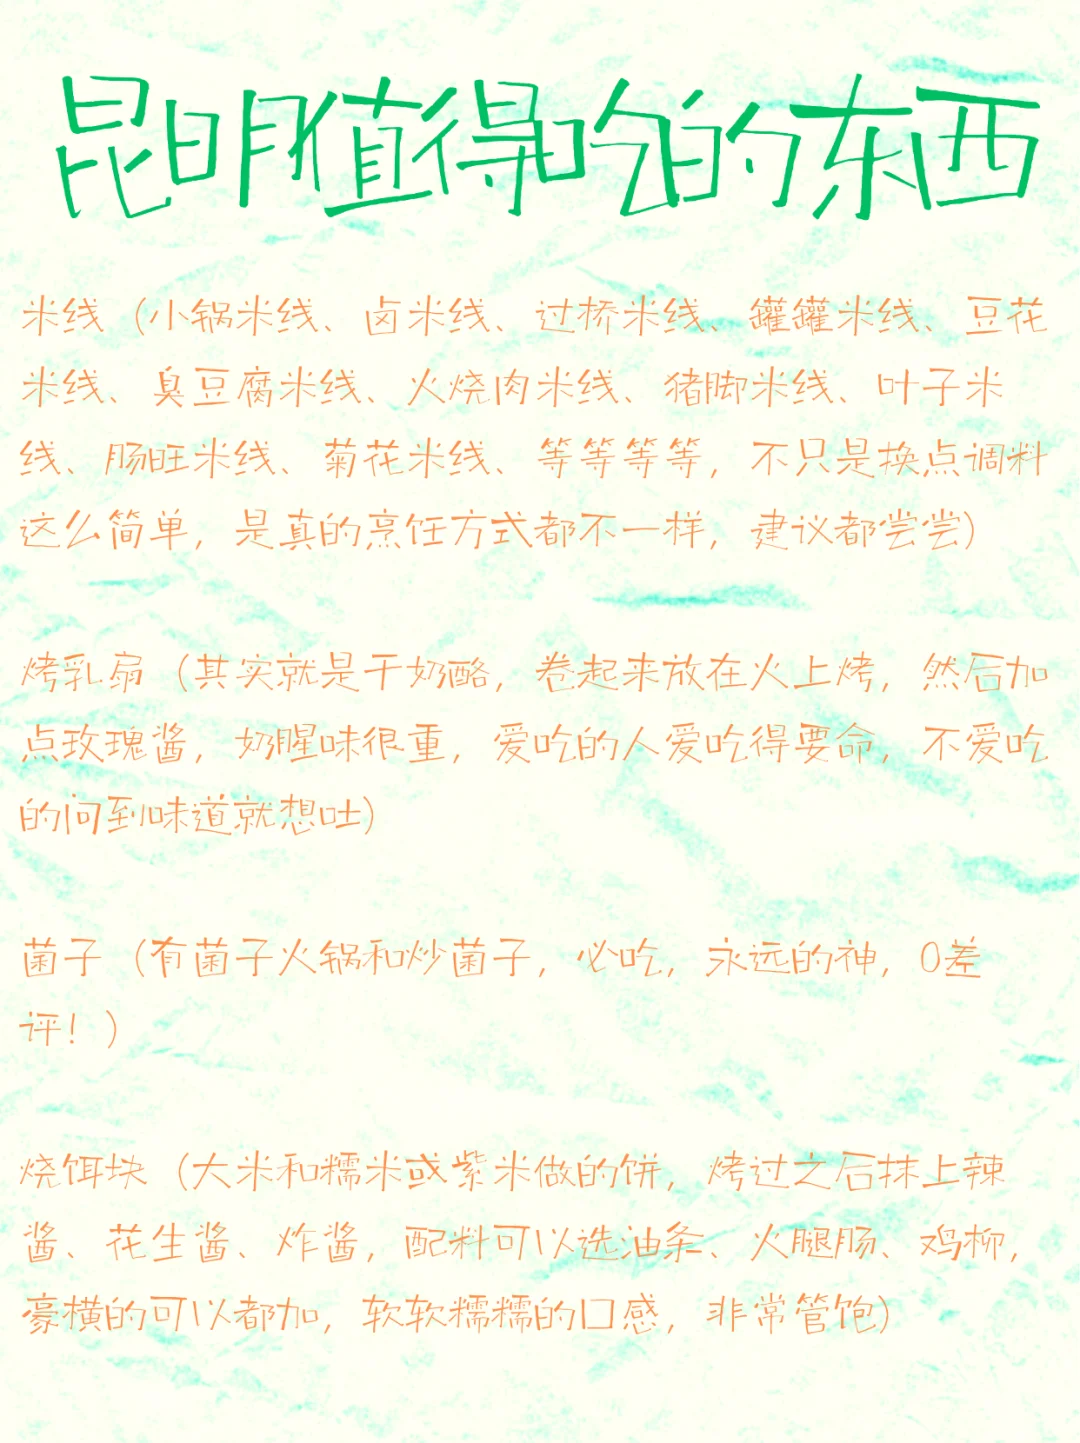 昆明值得吃的东西
米线（小锅米线、卤米线、过桥米线、罐罐米线、豆花
米线、臭豆腐米线、火烧肉米线、猪脚米线、叶子米
线、肠旺米线、菊花米线、等等等等，不只是换点调料
这么简单，是真的烹饪方式都不一样，建议都尝尝）
烤乳扇（其实就是干奶酪，卷起来放在火上烤，然后加
点玫瑰酱，奶腥味很重，爱吃的人爱吃得要命，不爱吃
的问到味道就想吐）
菌子（有菌子火锅和炒菌子，必吃，永远的神，0差
评！）
烧饵块（大米和糯米或紫米做的饼，烤过之后抹上辣
酱、花生酱、炸酱，配料可以选油条、火腿肠、鸡柳，
豪横的可以都加，软软糯糯的口感，非常管饱）